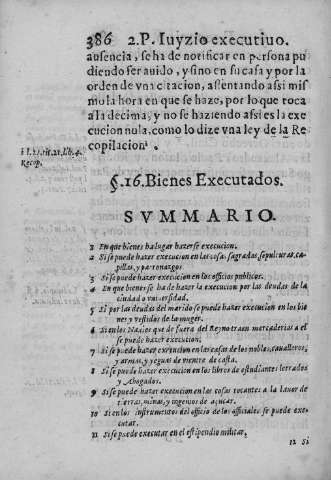 386 2.P. Iuyzio executiuo.
ausencia, se ha de notificar en persona pu
diendo ser auido, y sino en su casa y por la
orden de vna citacion, assentando assi mis
mo la hora en que se haze, por lo que toca
a la decima, y no se haziendo assi es la exe
cucion nula, como lo dize vna ley de la Re
copilacion.
lib. 4.
Recop.
§.16. Bienes Executados.
SVMMARIO.
1 En que bienes ha lugar hazerse execucion.
2 Si se puede hazer execucion en las cosas sagradas, sepulturas, ca-
pillas, y patronazgos
3 Si se puede hazer execucion en los officios publicos.
4 En que bienes se ha de hazer la execucion por las deudas de la
ciudad o vniuersidad.
5 Si por las deudas del marido se puede hazer execucion en los bie
nes y vestidos de la muger.
6 Si en los Nauios que de fuera del Reyno traen mercaderias a el
se puede hazer execucion;
7 Si se puede hazer execucion en las casas de los nobles, caualleros,
y armas, y yeguas de vientre de casta.
8 Si se puede hazer execucion en los libros de estudiantes letrados
y Abogados.
9 Si se puede hazer execucion en las cosas tocantes a la lauor de
tierras, minas, y ingenios de açucar.
10 Si en los instrumentos del officio de los officiales se puede exe-
cutar.
11 Si se puede executar en el estipendio militar.
12 Si